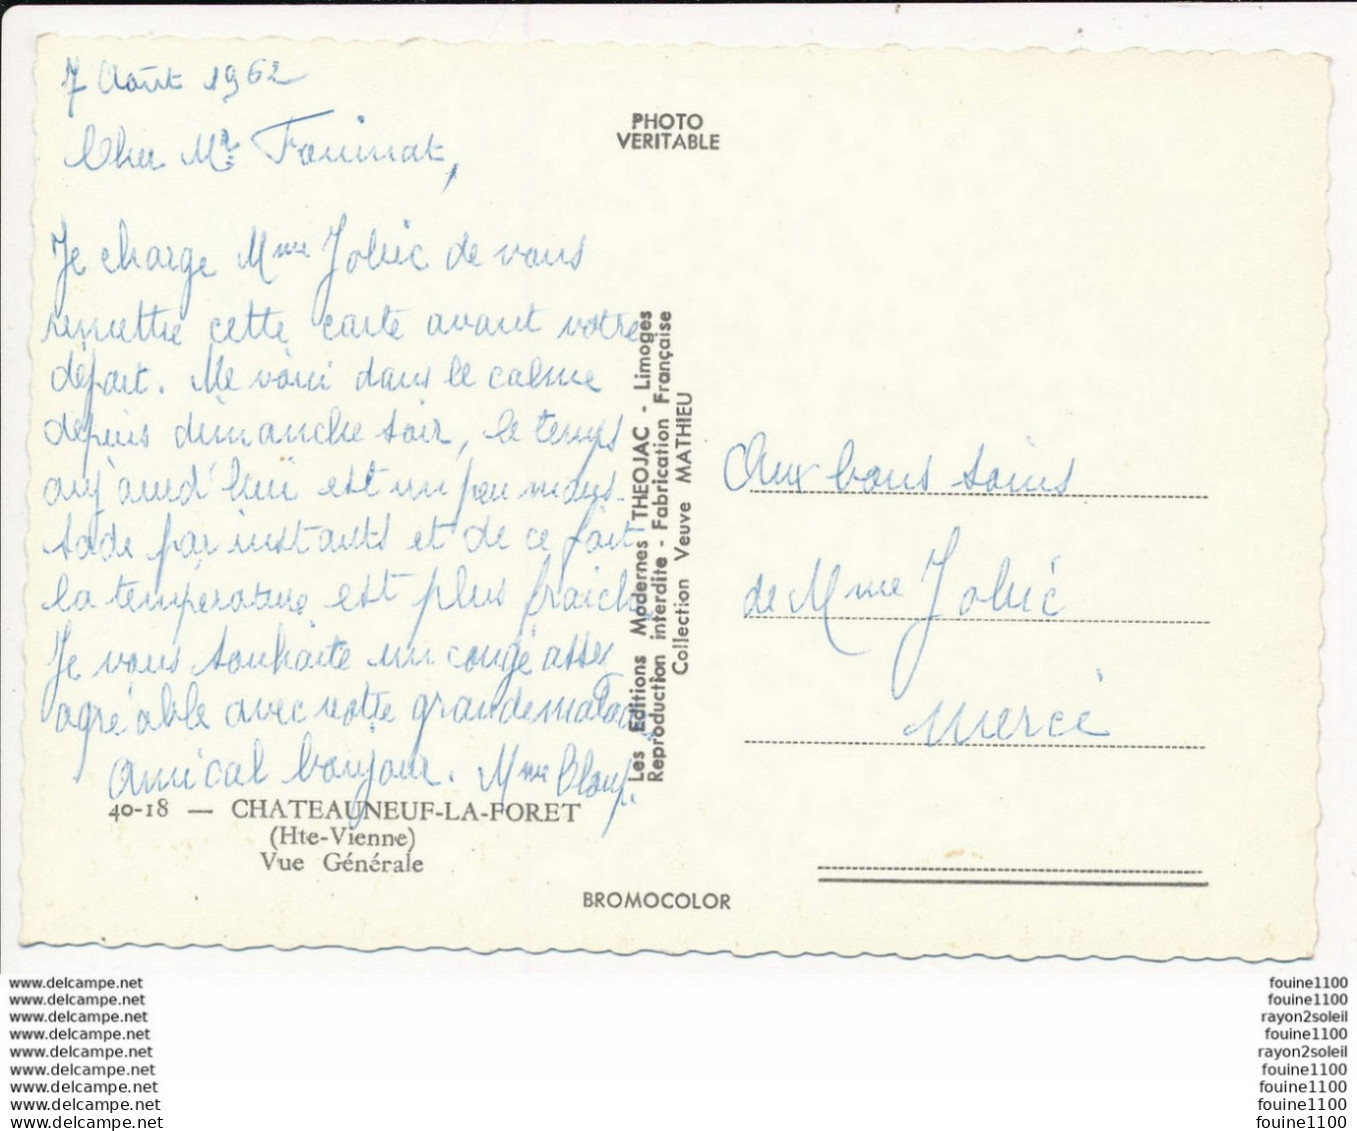 7 Août 1962
Cher Mr Fouinat,
Je charge Mme Jobic de vous
remettre cette carte avant votre
départ. Me voici dans le calme
depuis dimanche soir, le temps
aujourd'hui est un peu maus-
sade par instants et de ce fait
la température est plus fraîche
Je vous souhaite un congé assez
agréable avec votre grande malade
Amical bonjour. Mme
40-18 — CHATEAUNEUF-LA-FORET
(Hte-Vienne)
Vue Générale
PHOTO
VERITABLE
Les Editions Modernes THEOJAC - Limoges
Reproduction interdite - Fabrication Française
Collection Veuve MATHIEU
BROMOCOLOR
Aux bons soins
de Mme Jobic
merci
www.delcampe.net
www.delcampe.net
www.delcampe.net
www.delcampe.net
www.delcampe.net
www.delcampe.net
www.delcampe.net
www.delcampe.net
www.delcampe.net
fouine1100
fouine1100
rayon2soleil
fouine1100
rayon2soleil
fouine1100
fouine1100
fouine1100
fouine1100